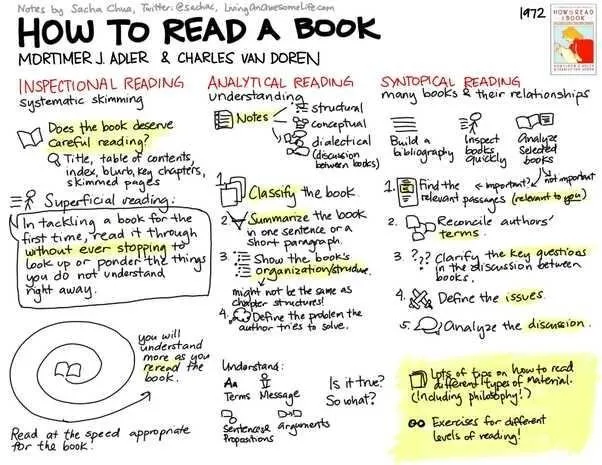 Notes by Sacha Chua, Twitter: @sachac, LivingAnAwesomeLife.com
HOW TO READ A BOOK
MORTIMER J. ADLER & CHARLES VAN DOREN
1972
HOW TO READ
A BOOK
INSPECTIONAL READING
systematic skimming
Does the book deserve
careful reading?
Title, table of contents,
index, blurb, key chapters,
skimmed pages
Superficial reading:
In tackling a book for the
first time, read it through
without ever stopping to
look up or ponder the things
you do not understand
right away.
you will
understand
more as you
reread the
book.
Read at the speed appropriate
for the book.
ANALYTICAL READING
understanding
Notes
structural
conceptual
dialectical
(discussion
between books)
1. Classify the book.
2. Summarize the book
in one sentence or a
short paragraph.
3. Show the book's
organization/structure.
might not be the same as
chapter structures!
4. Define the problem the
author tries to solve.
Understand:
Aa
Terms Message
Sentences & arguments
Propositions
Is it true?
So what?
SYNTOPICAL READING
many books & their relationships
Build a
bibliography
Inspect
books
quickly
Analyze
selected
books
1. Find the
relevant passages
important?
not important
(relevant to you)
2. Reconcile authors'
terms.
3. ??? Clarify the key questions
in the discussion between
books.
4. Define the issues.
5. Analyze the discussion.
Lots of tips on how to read
different types of material.
(Including philosophy!)
Exercises for different
levels of reading!